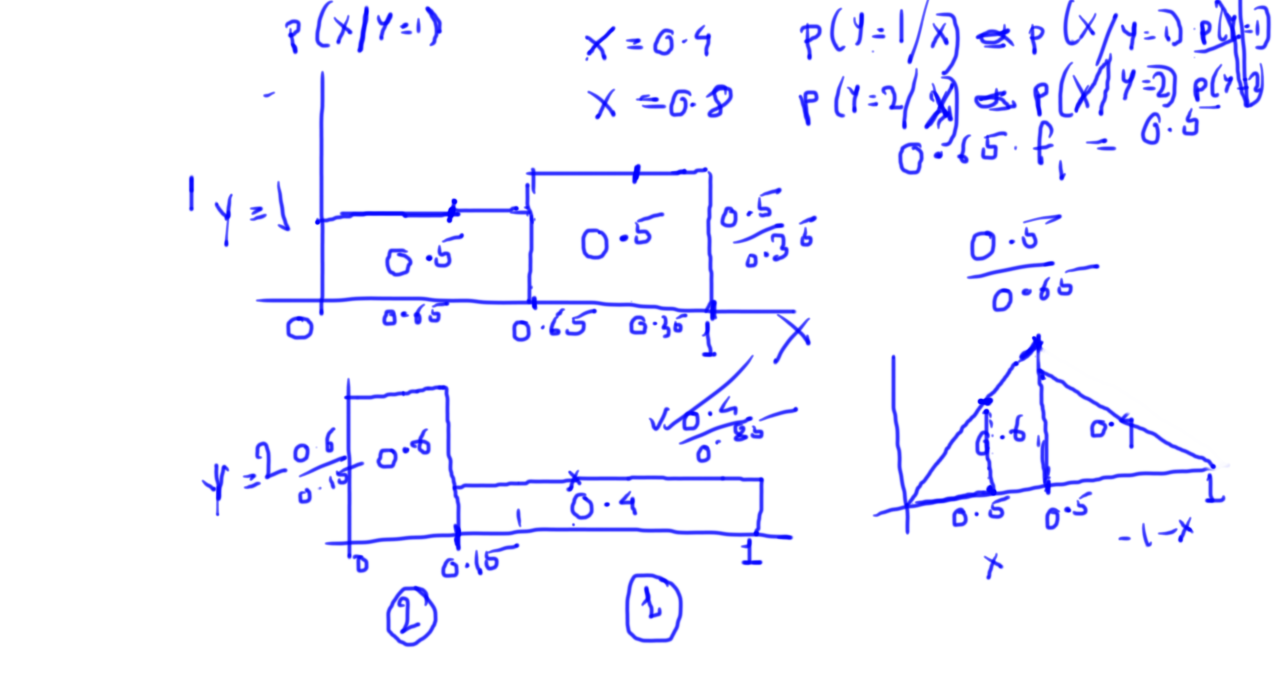 P(X/Y=1)
X = 0.4
X = 0.8
P(Y=1/X) ∝ P(X/Y=1) P(Y=1)
P(Y=2/X) ∝ P(X/Y=2) P(Y=2)
0.65 . f1 = 0.5
1 Y = 1
0.5
0.5
0.5
0.35
0
0.65
0.65
0.35
1
X
0.5
0.65
Y = 2
0.6
0.15
0.6
0.4
0.85
0.4
0
0.15
1
1
2
1
0.6
0.5
0.5
1
-1-x
x